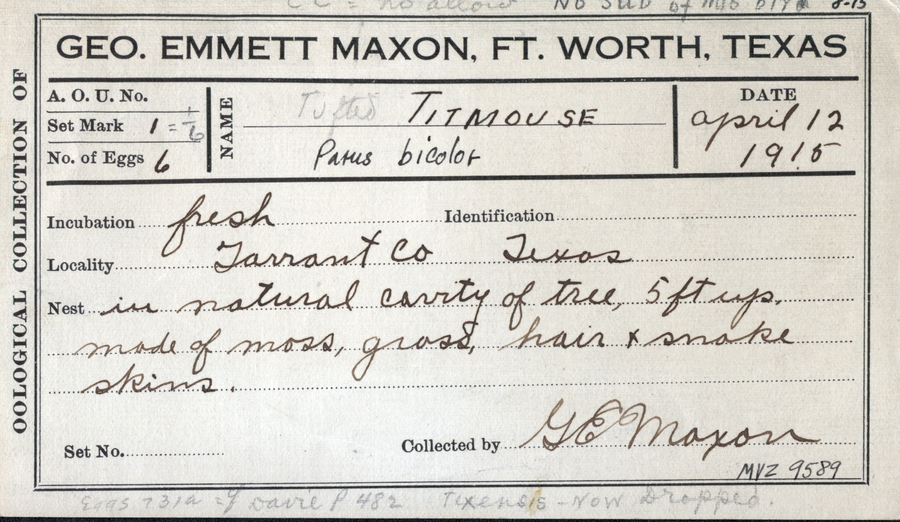 No Sub of 8-15
GEO. EMMETT MAXON, FT. WORTH, TEXAS
OOLOGICAL COLLECTION OF
A. O. U. No.
Set Mark 1 = 1/6
No. of Eggs 6
NAME
Tufted TITMOUSE
Parus bicolor
DATE
april 12
1915
Incubation fresh Identification
Locality Tarrant Co Texas
Nest in natural cavity of tree, 5 ft up.
made of moss, grass, hair & snake
skins.
Set No. Collected by G E Maxon
MVZ 9589
Eggs 731a = of Davie P 482 Texensis - Now Dropped.